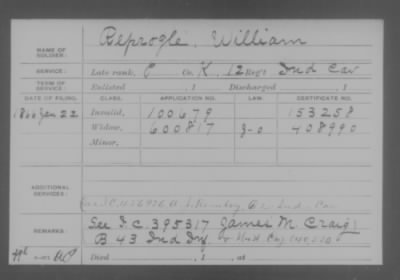 NAME OF SOLDIER: Reprogle, William
SERVICE: Late rank, P Co. K, 12 Reg't Ind Cav
TERM OF SERVICE: Enlisted , 1 Discharged , 1
DATE OF FILING. CLASS. APPLICATION NO. LAW. CERTIFICATE NO.
Jan 22 Invalid, 100679 153258
Widow, 600817 408990
Minor,
ADDITIONAL SERVICES:
Ind. Cav
REMARKS: See I.C. 395317 James M. Craig
B 43 Ind Inf
Died , 1 , at